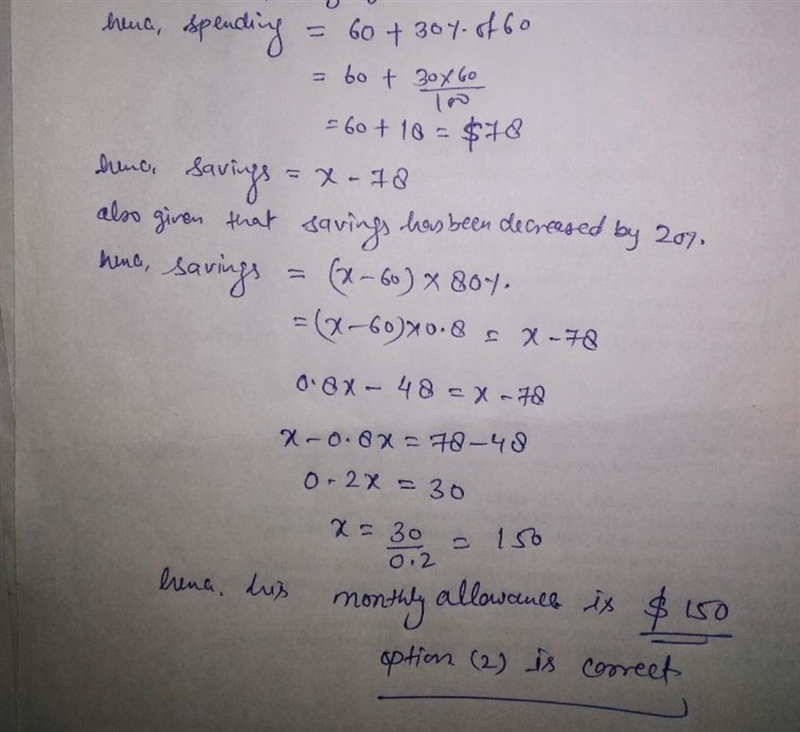 hence, spending = 60 + 30% of 60
= 60 + 30×60/100
= 60 + 18 = $78
hence, savings = x - 78
also given that savings has been decreased by 20%.
hence, savings = (x-60) × 80%.
= (x-60)×0.8 = x - 78
0.8x - 48 = x - 78
x - 0.8x = 78 - 48
0.2x = 30
x = 30/0.2 = 150
hence, his monthly allowance is $150
option (2) is correct